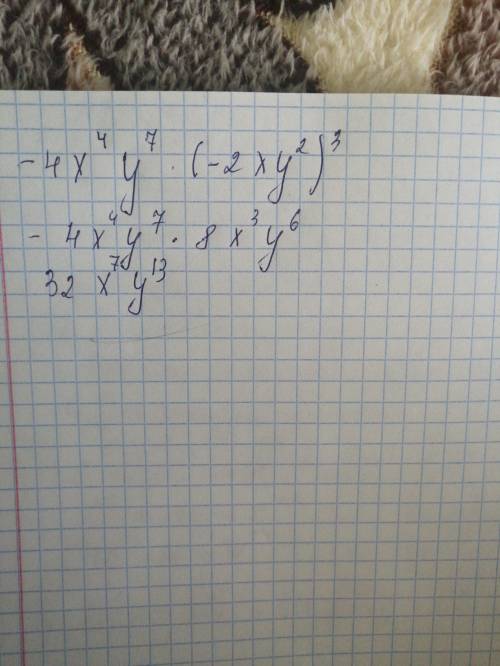 -4x⁴y⁷·(-2xy²)³
-4x⁴y⁷·8x³y⁶
32x⁷y¹³